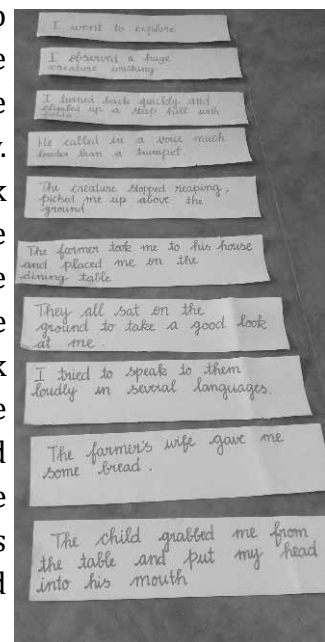 I went to explore
I observed a huge
creature walking
I turned back quickly and
climbed up a steep hill with
fields
He called in a voice much
louder than a trumpet.
The creature stopped reaping,
picked me up above the
ground
The farmer took me to his house
and placed me on the
dining table
They all sat on the
ground to take a good look
at me.
I tried to speak to them
loudly in several languages.
The farmer's wife gave me
some bread.
The child grabbed me from
the table and put my head
into his mouth